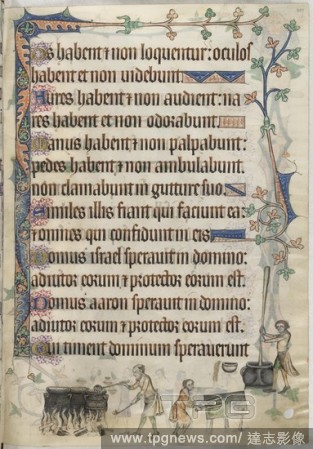 Os habent ⁊ non loquentur: oculos
habent et non uidebunt
Aures habent ⁊ non audient: na
res habent et non odorabunt.
Manus habent ⁊ non palpabunt:
pedes habent ⁊ non ambulabunt.
non clamabunt in gutture suo.
Similes illis fiant qui faciunt ea:
⁊ omnes qui confidunt in eis
Domus israel sperauit in domino:
adiutor eorum ⁊ protector eorum est.
Domus aaron sperauit in domino:
adiutor eorum ⁊ protector eorum est.
Qui timent dominum sperauerunt
TPG
www.tpgnews.com/ 達志影像